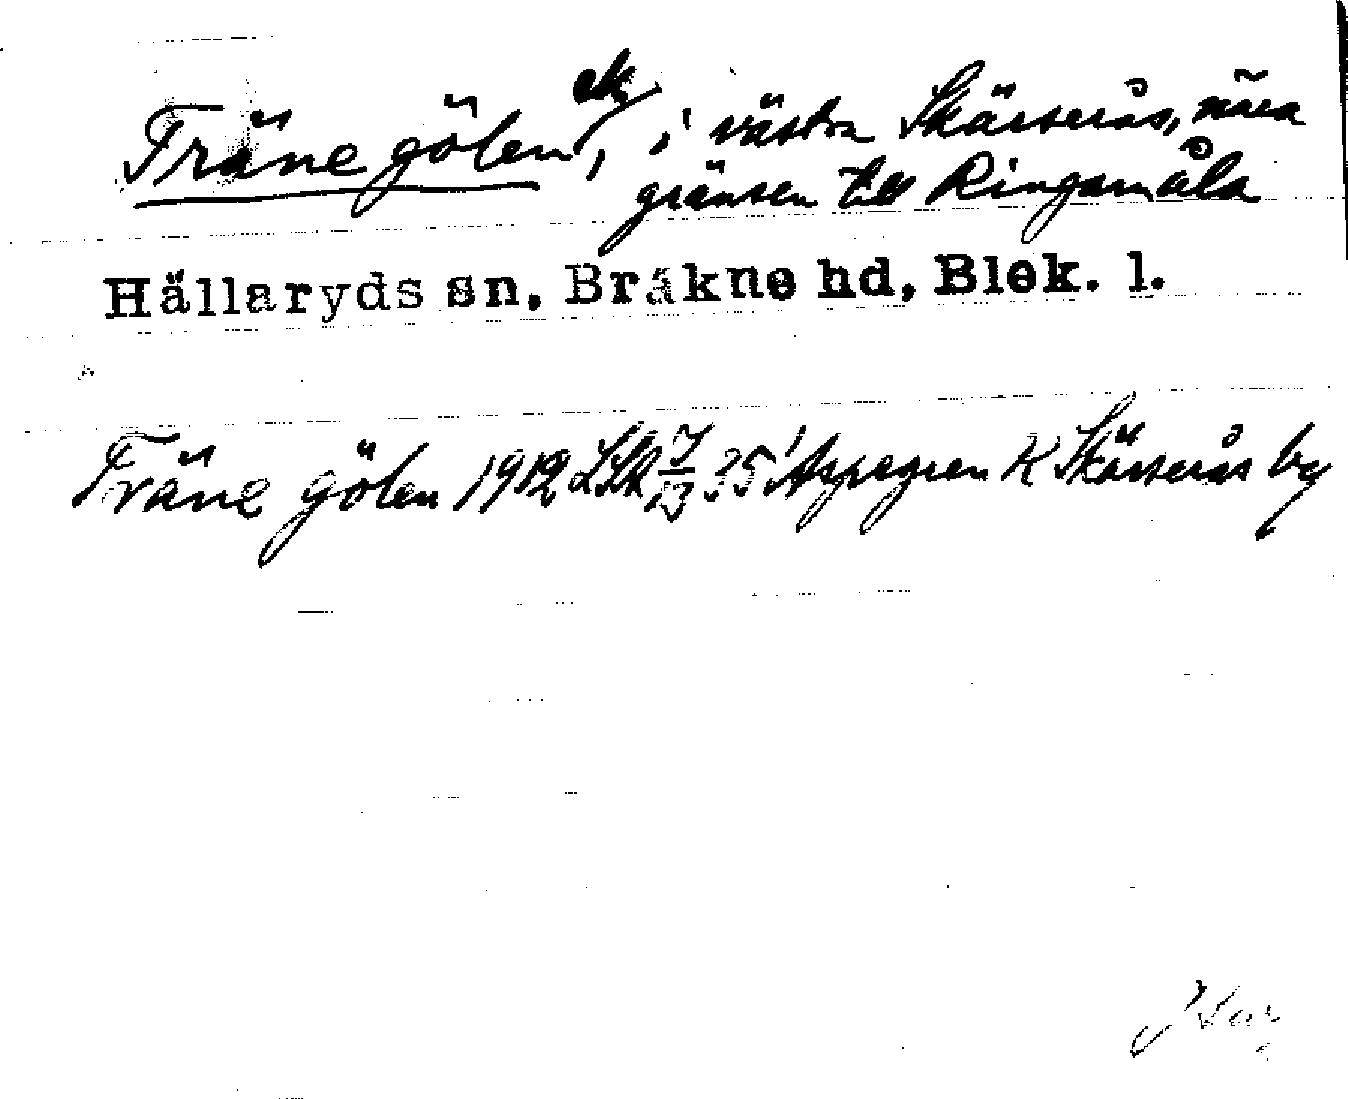 Träne gölen, i västra Skärserås, nära
gränsen till Ringamåla
Hällaryds sn, Bräkne hd, Blek. l.
Träne gölen 1912 LSK 7/13 ?5 Aspegren K Skärserås by